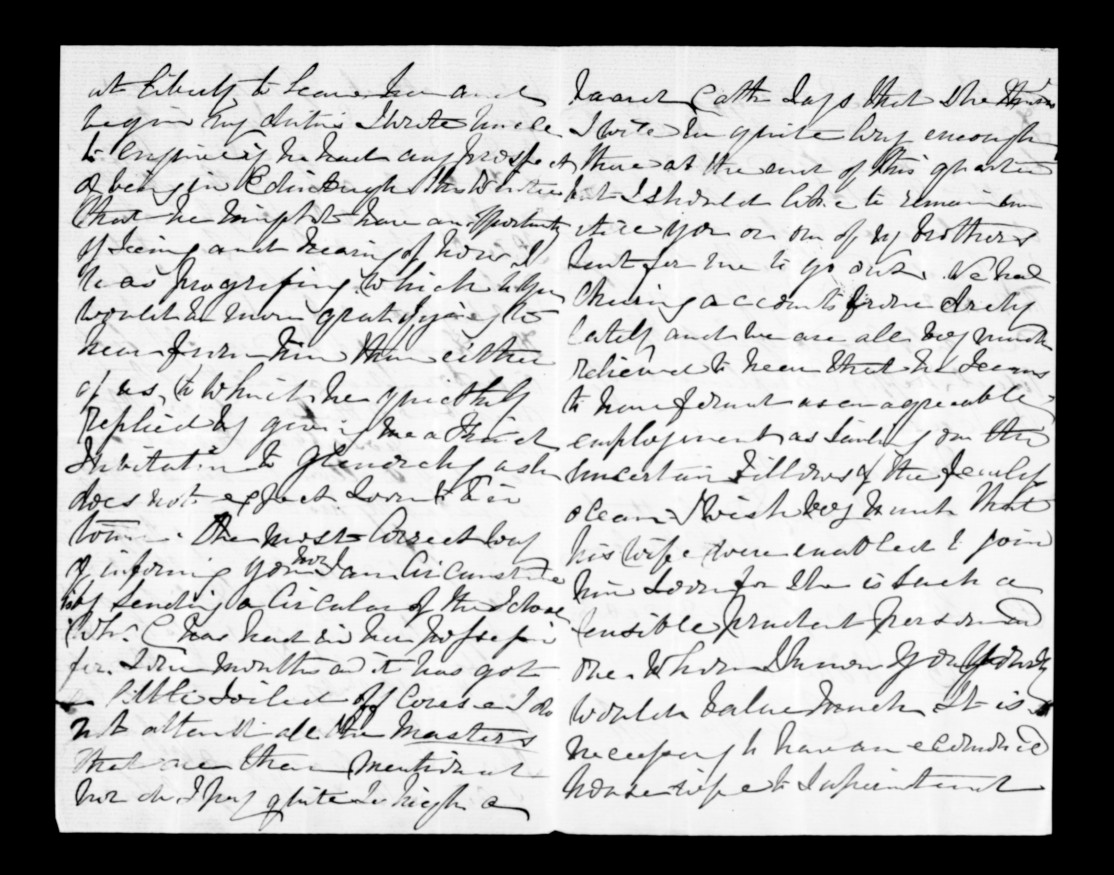 at liberty to leave her and
begin my duties I wrote Uncle
to enquire if he had any prospect
of being in Edinburgh this Winter
that he might have an opportunity
of seeing and hearing of how I
was progressing, which
would be more gratifying to
hear from him than either
of us, to which he quickly
replied by giving me a kind
Invitation to Glenorchy as he
does not expect soon to be in
town. The most correct way
of informing you how I am Circumstanced
is by sending a Circular of the School
Wh. C has had in her possession
for some months as it has got
a little soiled Of Course I do
not attend all the Masters
that are there mentioned
nor do I pay quite so high a
board Cath. says that she thinks
I write quite long enough
there at the end of this quarter
but I should like to remain
till you or one of my brothers
sent for me to go out. We had
Cheering accounts from
lately and we are all very much
relieved to hear that he seems
to have found as an agreeable
employment as sailing on the
uncertain billows of the
ocean. I wish very much that
his Wife were enabled to join
him soon for she is such a
sensible prudent person and
one whom I know you
would value much It is
necessary to have an economical
housewife to Superintend